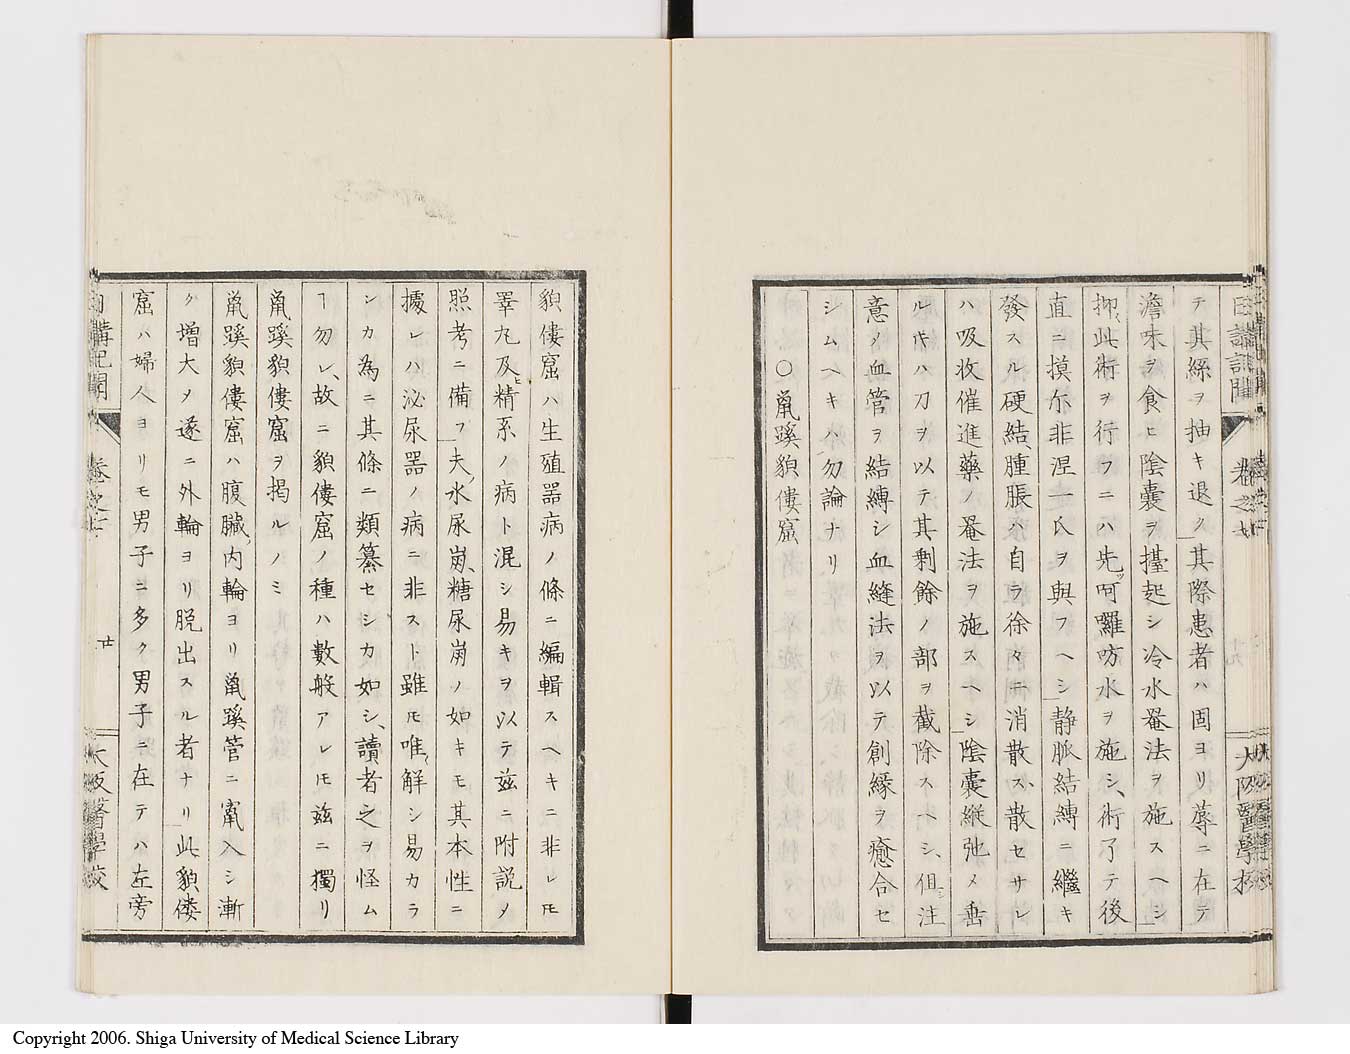 日講記聞 卷之七 十九 大阪醫學校
テ其絲ヲ抽キ退ク其際患者ハ固ヨリ蓐ニ在テ
澹味ヲ食ヒ陰囊ヲ擡起シ冷水罨法ヲ施スヘシ
抑此術ヲ行フニハ先ツ呵囉吩水ヲ施シ、術了テ後
直ニ摸尓非涅一氏ヲ與フヘシ静脈結縛ニ繼キ
發スル硬結、腫脹ハ自ラ徐々ニ消散ス、散セサレ
ハ吸收催進藥ノ罨法ヲ施スヘシ陰囊縱弛メ垂
ルキハ刀ヲ以テ其剩餘ノ部ヲ截除スヘシ、但シ注
意ノ血管ヲ結縛シ血縫法ヲ以テ創縁ヲ癒合セ
シムヘキハ勿論ナリ
〇鼠蹊貌僂窟
貌僂窟ハ生殖器病ノ條ニ編輯スヘキニ非レモ
睪丸及ヒ精系ノ病ト混シ易キヲ以テ茲ニ附説ノ
照考ニ備フ夫ノ水尿崩、糖尿崩ノ如キモ其本性ニ
據レハ泌尿器ノ病ニ非スト雖モ唯解シ易カラ
ンカ為ニ其條ニ類纂セシカ如シ、讀者之ヲ怪ム
ヿ勿レ、故ニ貌僂窟ノ種ハ數般アレモ茲ニ獨リ
鼠蹊貌僂窟ヲ掲ルノミ
鼠蹊貌僂窟ハ腹臓内輪ヨリ鼠蹊管ニ竄入シ漸
ク増大メ遂ニ外輪ヨリ脱出スル者ナリ此貌僂
窟ハ婦人ヨリモ男子ニ多ク男子ニ在テハ左旁
日講記聞 卷之七 廿 大阪醫學校
Copyright 2006. Shiga University of Medical Science Library